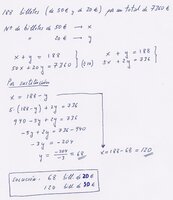 188 billetes (de 50€ y de 20€) por un total de 7360€
Nº de billetes de 50€ → x
" de 20€ → y
x + y = 188
50x + 20y = 7360 } (:10)
x + y = 188
5x + 2y = 736 }
Por sustitución
x = 188 - y
5·(188 - y) + 2y = 736
940 - 5y + 2y = 736
-5y + 2y = 736 - 940
-3y = -204
y = -204/-3 = 68 → x = 188 - 68 = 120
Solución: 68 bill de 20€
120 bill de 50€